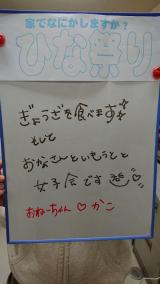 家でなにかしますか?
ひな祭り
ぎょうざを食べます
そして
おかさんといもうとと
女子会です
おねーちゃん♡かこ